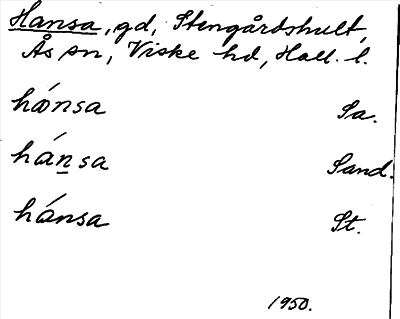 Hansa, gd, Stengårdshult,
Ås sn, Viske hd, Hall. l.
hánsa Sa.
hánsa Sand.
hánsa St.
1950.